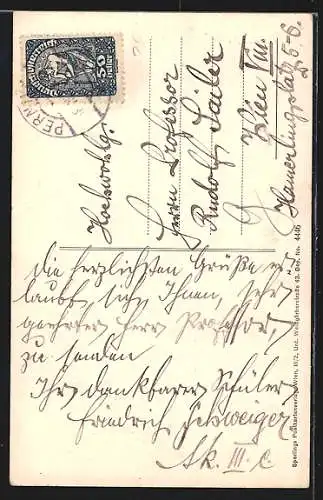 Hochwohlg.
Herrn Professor
Rudolf Sailer
Wien VIII.
Hamerlingplatz 5-6.
Die herzlichsten Grüße er-
laubt sich Ihnen, sehr
geehrter Herr Professor,
zu senden
Ihr dankbarer Schüler
Friedrich Schweiger
III. c
50
PERNI
Sperlings Postkartenverlag, Wien, III/2, Unt. Weißgärberstraße 43. Ges. No. 4446